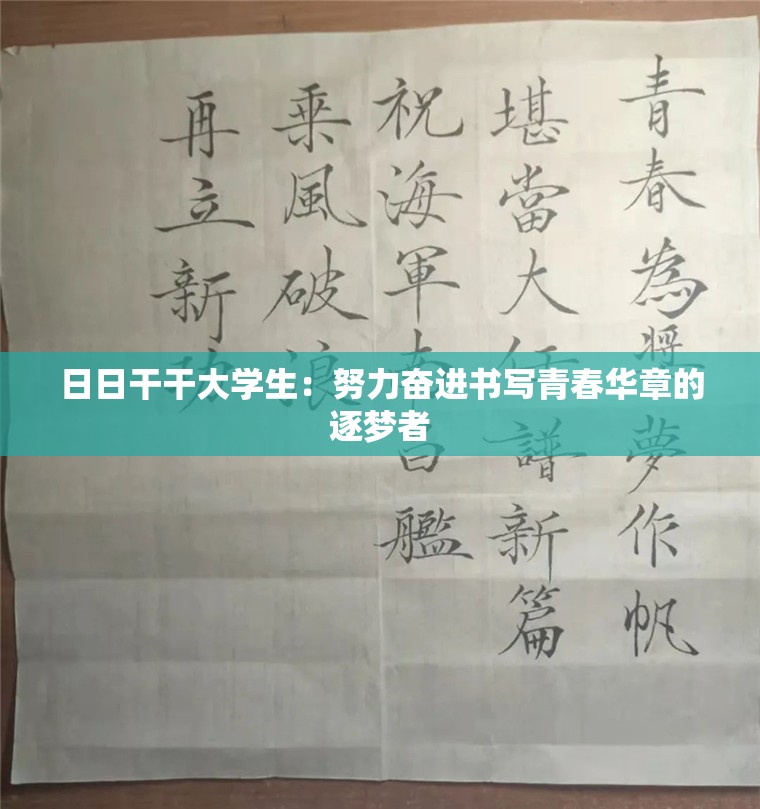 青春為夢作帆
堪當大任譜新篇
祝海軍南昌艦
乘風破浪
再立新功
日日干干大学生：努力奋进书写青春华章的
逐梦者